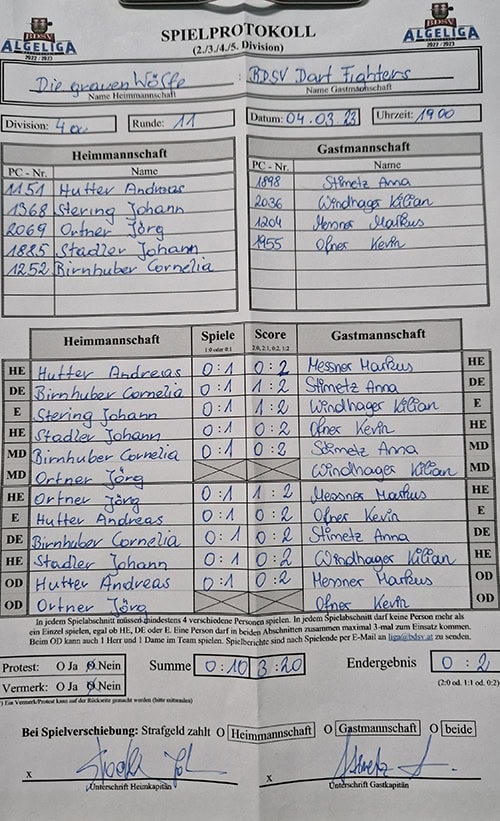 BDSV
ALGELIGA
2022 / 2023
SPIELPROTOKOLL
(2./3./4./5. Division)
BDSV
ALGELIGA
2022/2023
Die grauen Wölfe : BDSV Dart Fighters
Name Heimmannschaft Name Gastmannschaft
Division: 4a Runde: 11 Datum: 04.03.23 Uhrzeit: 19 00
Heimmannschaft Gastmannschaft
PC - Nr. Name PC - Nr. Name
1151 Hutter Andreas 1898 Stimetz Anna
1368 Stering Johann 2036 Windhager Kilian
2069 Ortner Jörg 1204 Messner Markus
1885 Stadler Johann 1955 Ofner Kevin
1252 Birnhuber Cornelia
Heimmannschaft Spiele Score Gastmannschaft
1:0 oder 0:1 2:0, 2:1, 0:2, 1:2
HE Hutter Andreas 0:1 0:2 Messner Markus HE
DE Birnhuber Cornelia 0:1 1:2 Stimetz Anna DE
E Stering Johann 0:1 1:2 Windhager Kilian E
HE Stadler Johann 0:1 0:2 Ofner Kevin HE
MD Birnhuber Cornelia 0:1 0:2 Stimetz Anna MD
MD Ortner Jörg Windhager Kilian MD
HE Ortner Jörg 0:1 1:2 Messner Markus HE
E Hutter Andreas 0:1 0:2 Ofner Kevin E
DE Birnhuber Cornelia 0:1 0:2 Stimetz Anna DE
HE Stadler Johann 0:1 0:2 Windhager Kilian HE
OD Hutter Andreas 0:1 0:2 Messner Markus OD
OD Ortner Jörg Ofner Kevin OD
In jedem Spielabschnitt müssen mindestens 4 verschiedene Personen spielen. In jedem Spielabschnitt darf keine Person mehr als
ein Einzel spielen, egal ob HE, DE oder E. Eine Person darf in beiden Abschnitten zusammen maximal 3-mal zum Einsatz kommen.
Beim OD kann auch 1 Herr und 1 Dame im Team spielen. Spielberichte sind nach Spielende per E-Mail an liga@bdsv.at zu senden.
Protest: O Ja O Nein Summe 0:10 3:20 Endergebnis 0:2
Vermerk: O Ja O Nein (2:0 od. 1:1 od. 0:2)
*) Ein Vermerk/Protest kann auf der Rückseite gemacht werden (bitte mitsenden)
Bei Spielverschiebung: Strafgeld zahlt O Heimmannschaft O Gastmannschaft O beide
x x
Unterschrift Heimkapitän Unterschrift Gastkapitän